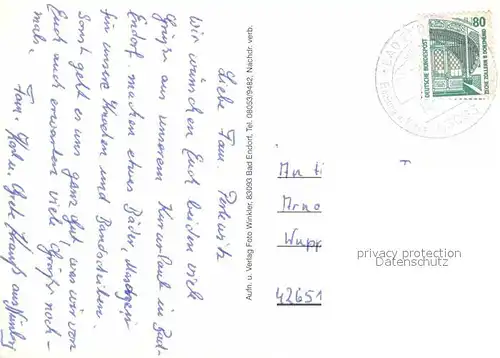 Liebe Fam. Perkwitz
Wir wünschen Euch beiden viele
Grüße aus unserem Kurerlaub in Bad-
Endorf. machen etwas Bäder, Massagen
für unsere Knochen und Bandscheiben.
Sonst geht es uns ganz gut, was wir von
Euch auch erwarten viele Grüße noch-
mals. Fam. Karl u. Grete
Aufn. u. Verlag Foto Winkler, 83093 Bad Endorf, Tel. 08053/9482. Nachdr. verb.
80
DEUTSCHE BUNDESPOST
ZECHE ZOLLERN II DORTMUND
BAD
An
Arno
Wupp
42651
privacy protection
Datenschutz